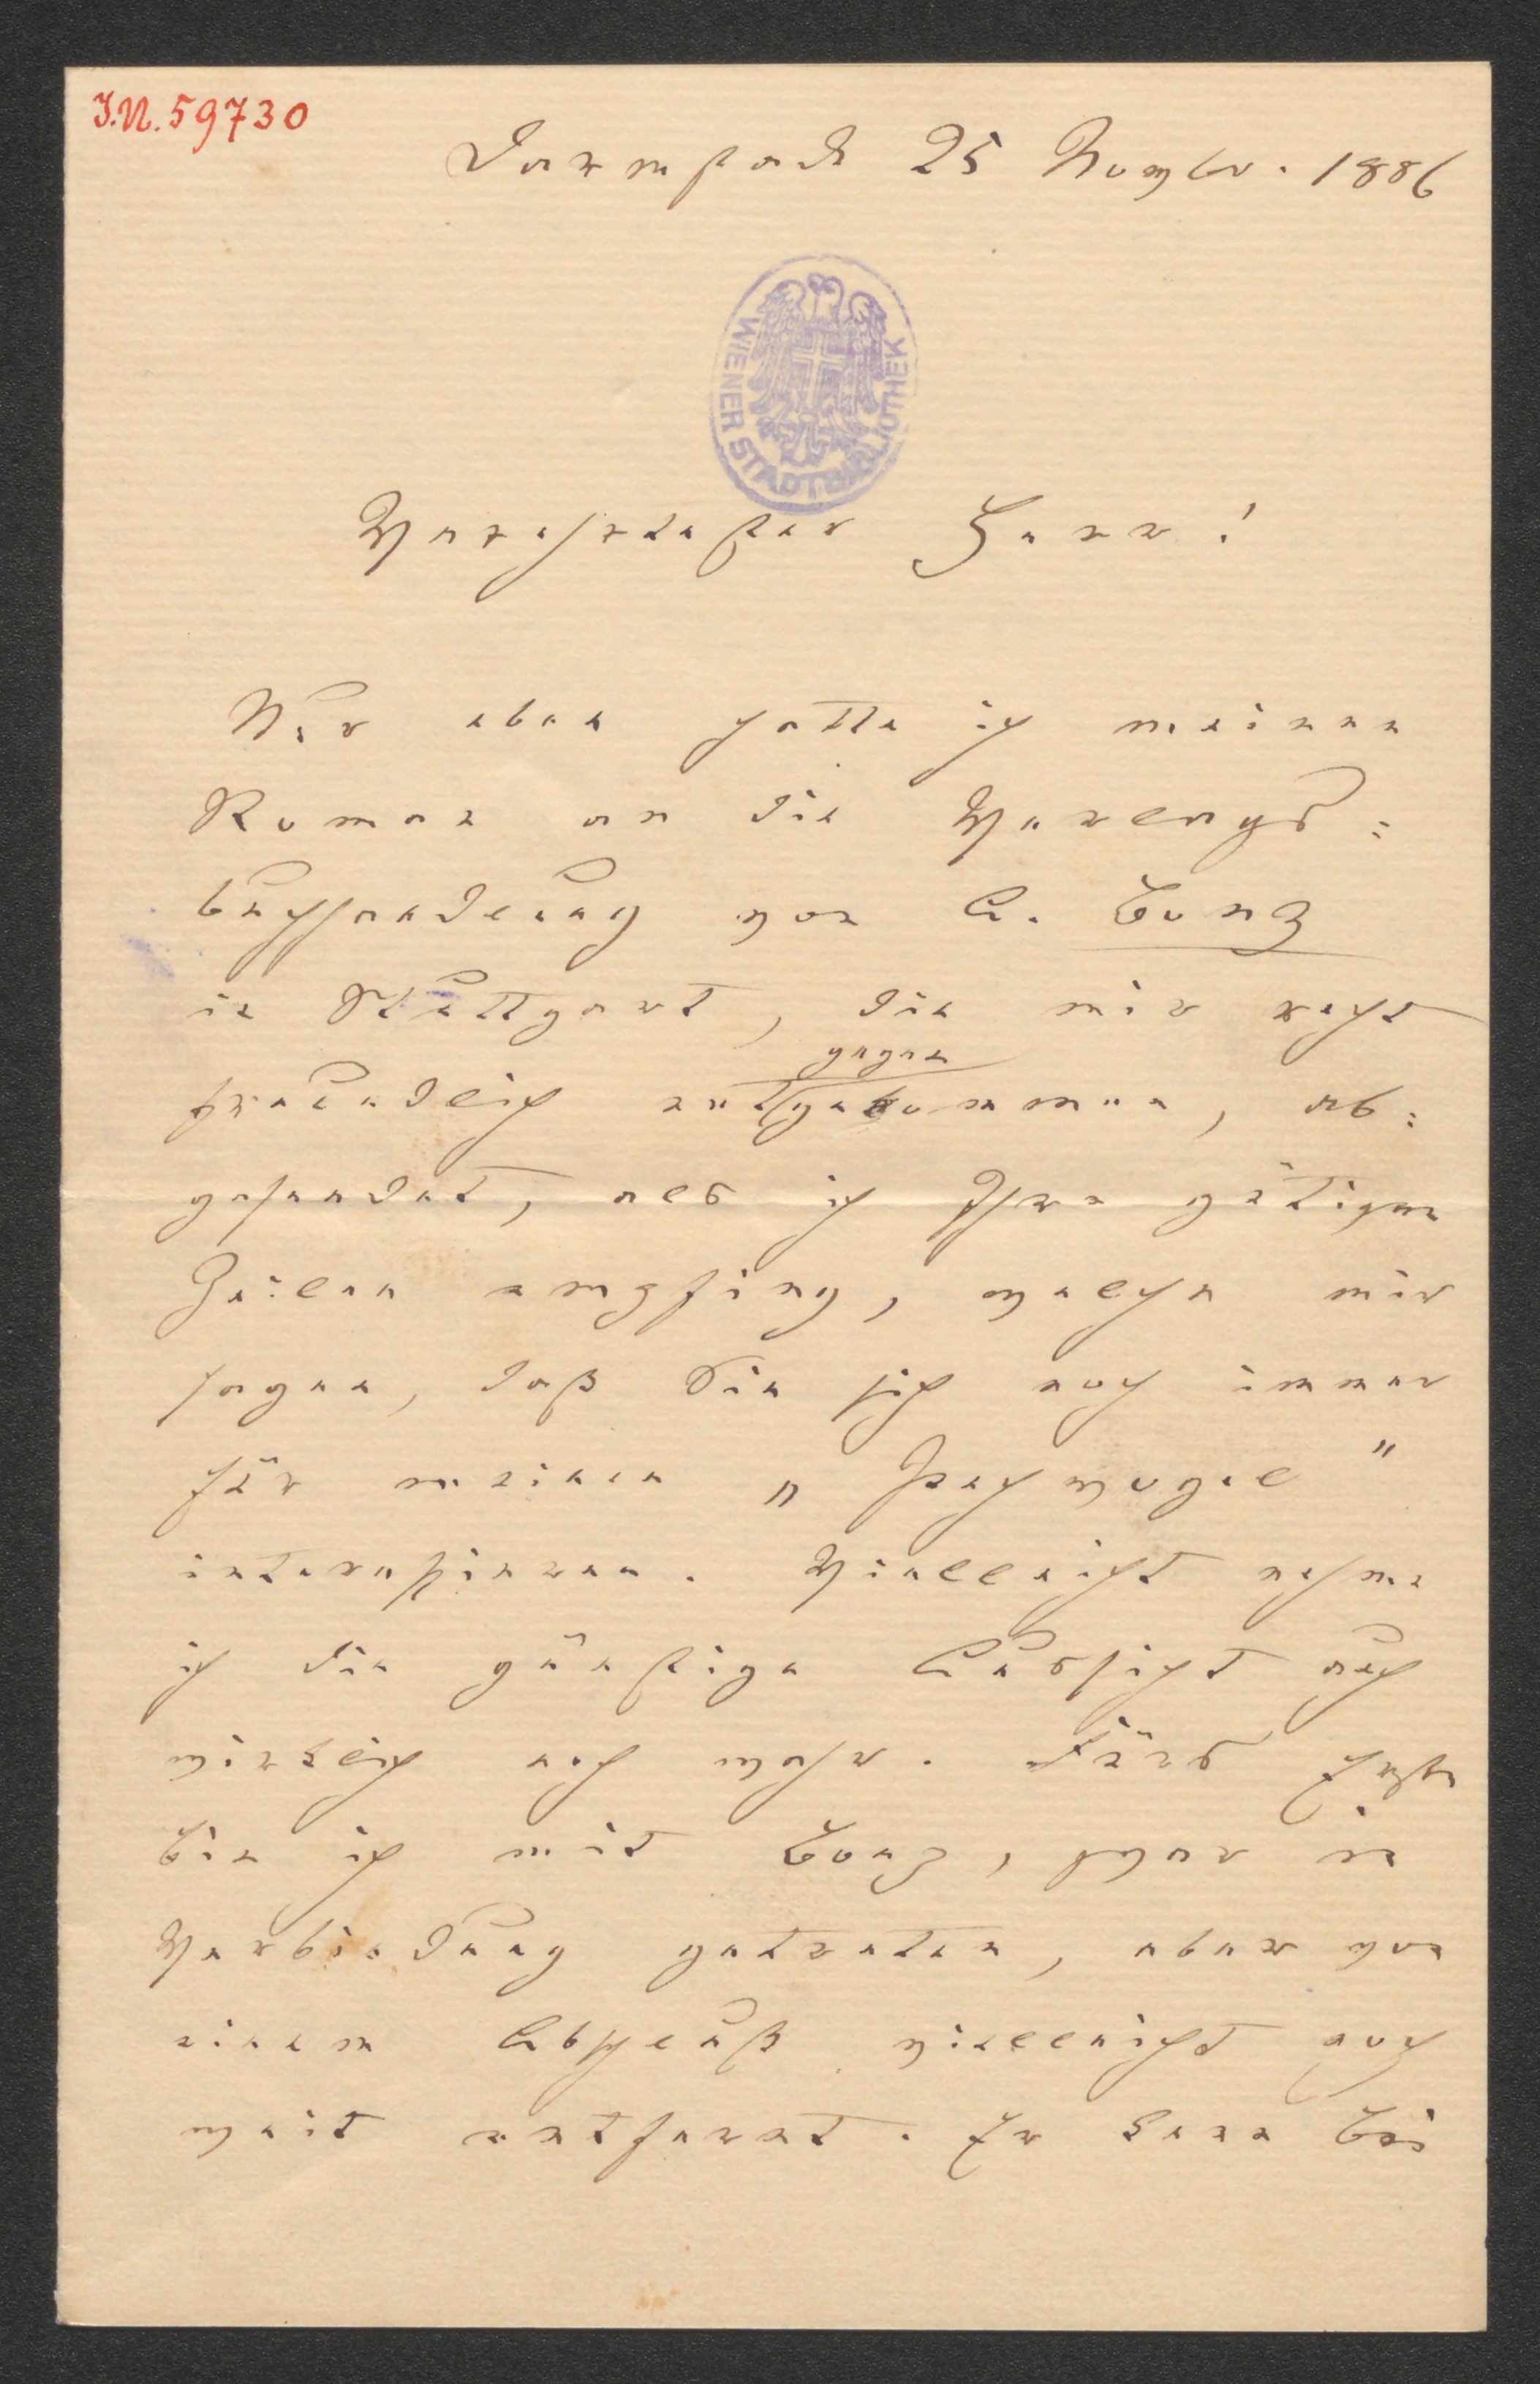 I.N. 59730
Darmstadt 25 Novbr. 1886
WIENER STADTBIBLIOTHEK
Verehrtester Herr!
Nur eben hatte ich meinen
Roman an die Verlags=
buchhandlung von A. Bonz
in Stuttgart, die mir recht
gegen
freundlich entgekommen, ab=
gesendet, als ich Ihre gütigen
Zeilen empfing, welche mir
sagen, daß Sie sich noch immer
für meinen „Pechvogel"
interessieren. Vielleicht nehme
ich die günstige Aussicht auch
wirklich noch wahr. Fürs Erste
bin ich mit Bonz, zwar in
Verbindung getreten, aber von
einem Abschluß vielleicht noch
weit entfernt. Er kann bei